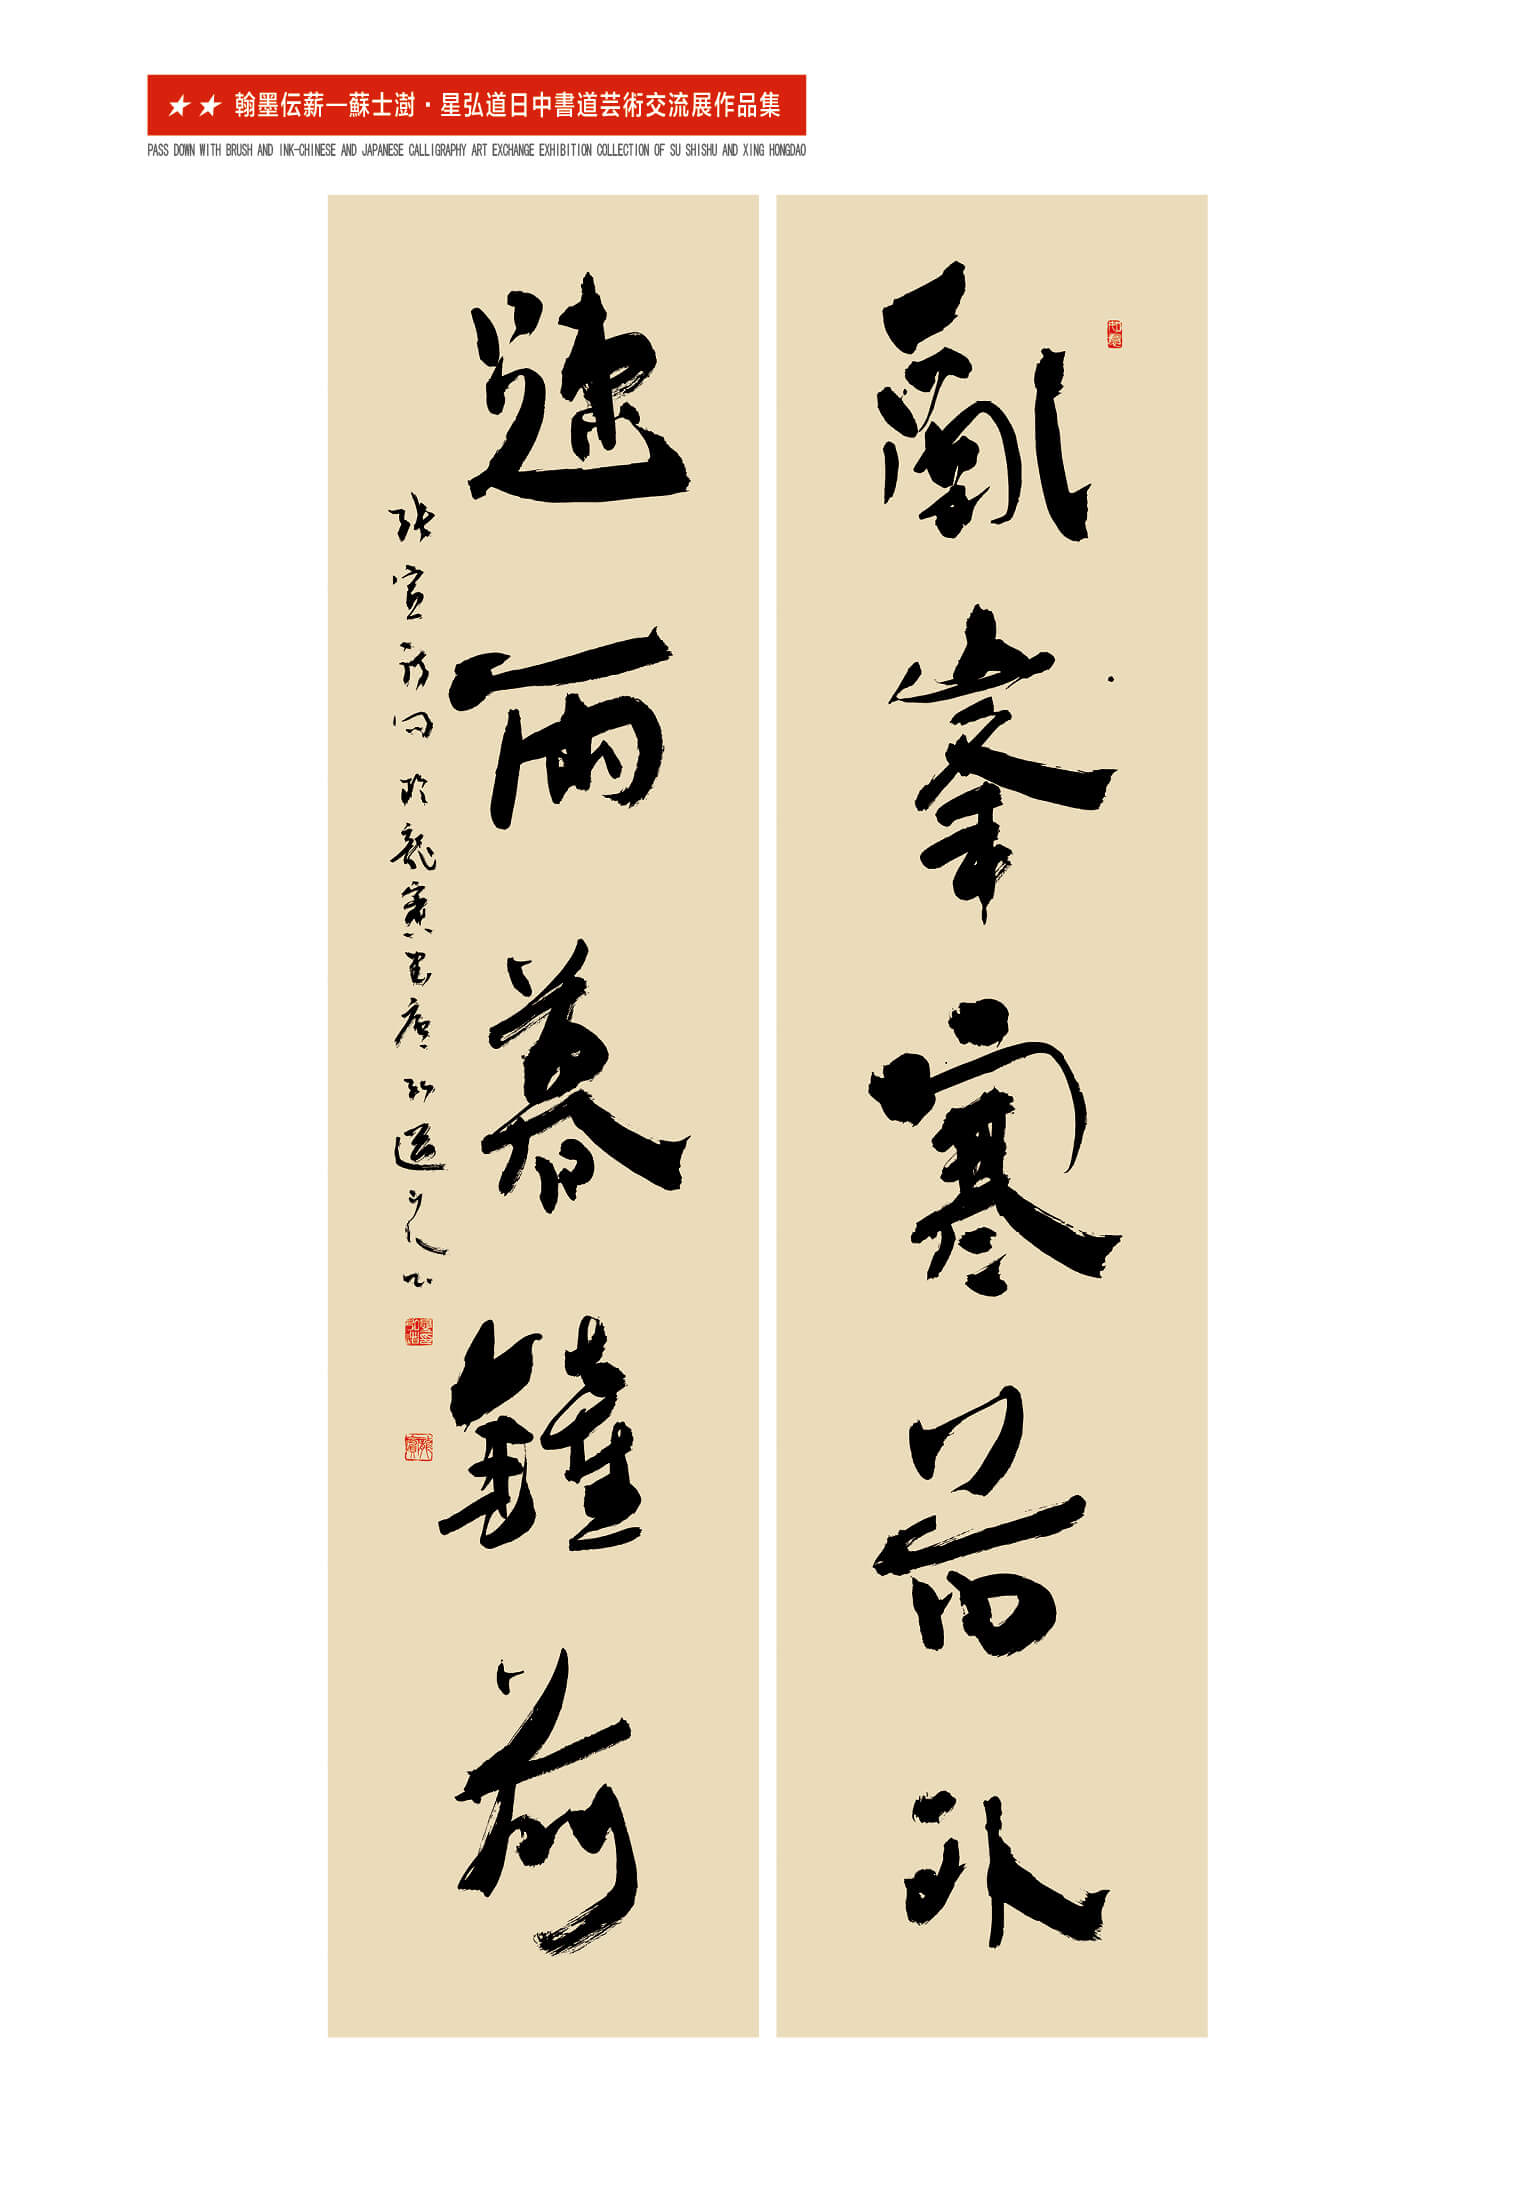 翰墨伝薪—蘇士澍·星弘道日中書道芸術交流展作品集
PASS DOWN WITH BRUSH AND INK-CHINESE AND JAPANESE CALLIGRAPHY ART EXCHANGE EXHIBITION COLLECTION OF SU SHISHU AND XING HONGDAO
亂峯寒苔外
速雨暮鐘前
張宣詩句 於龍寶書庵 弘道